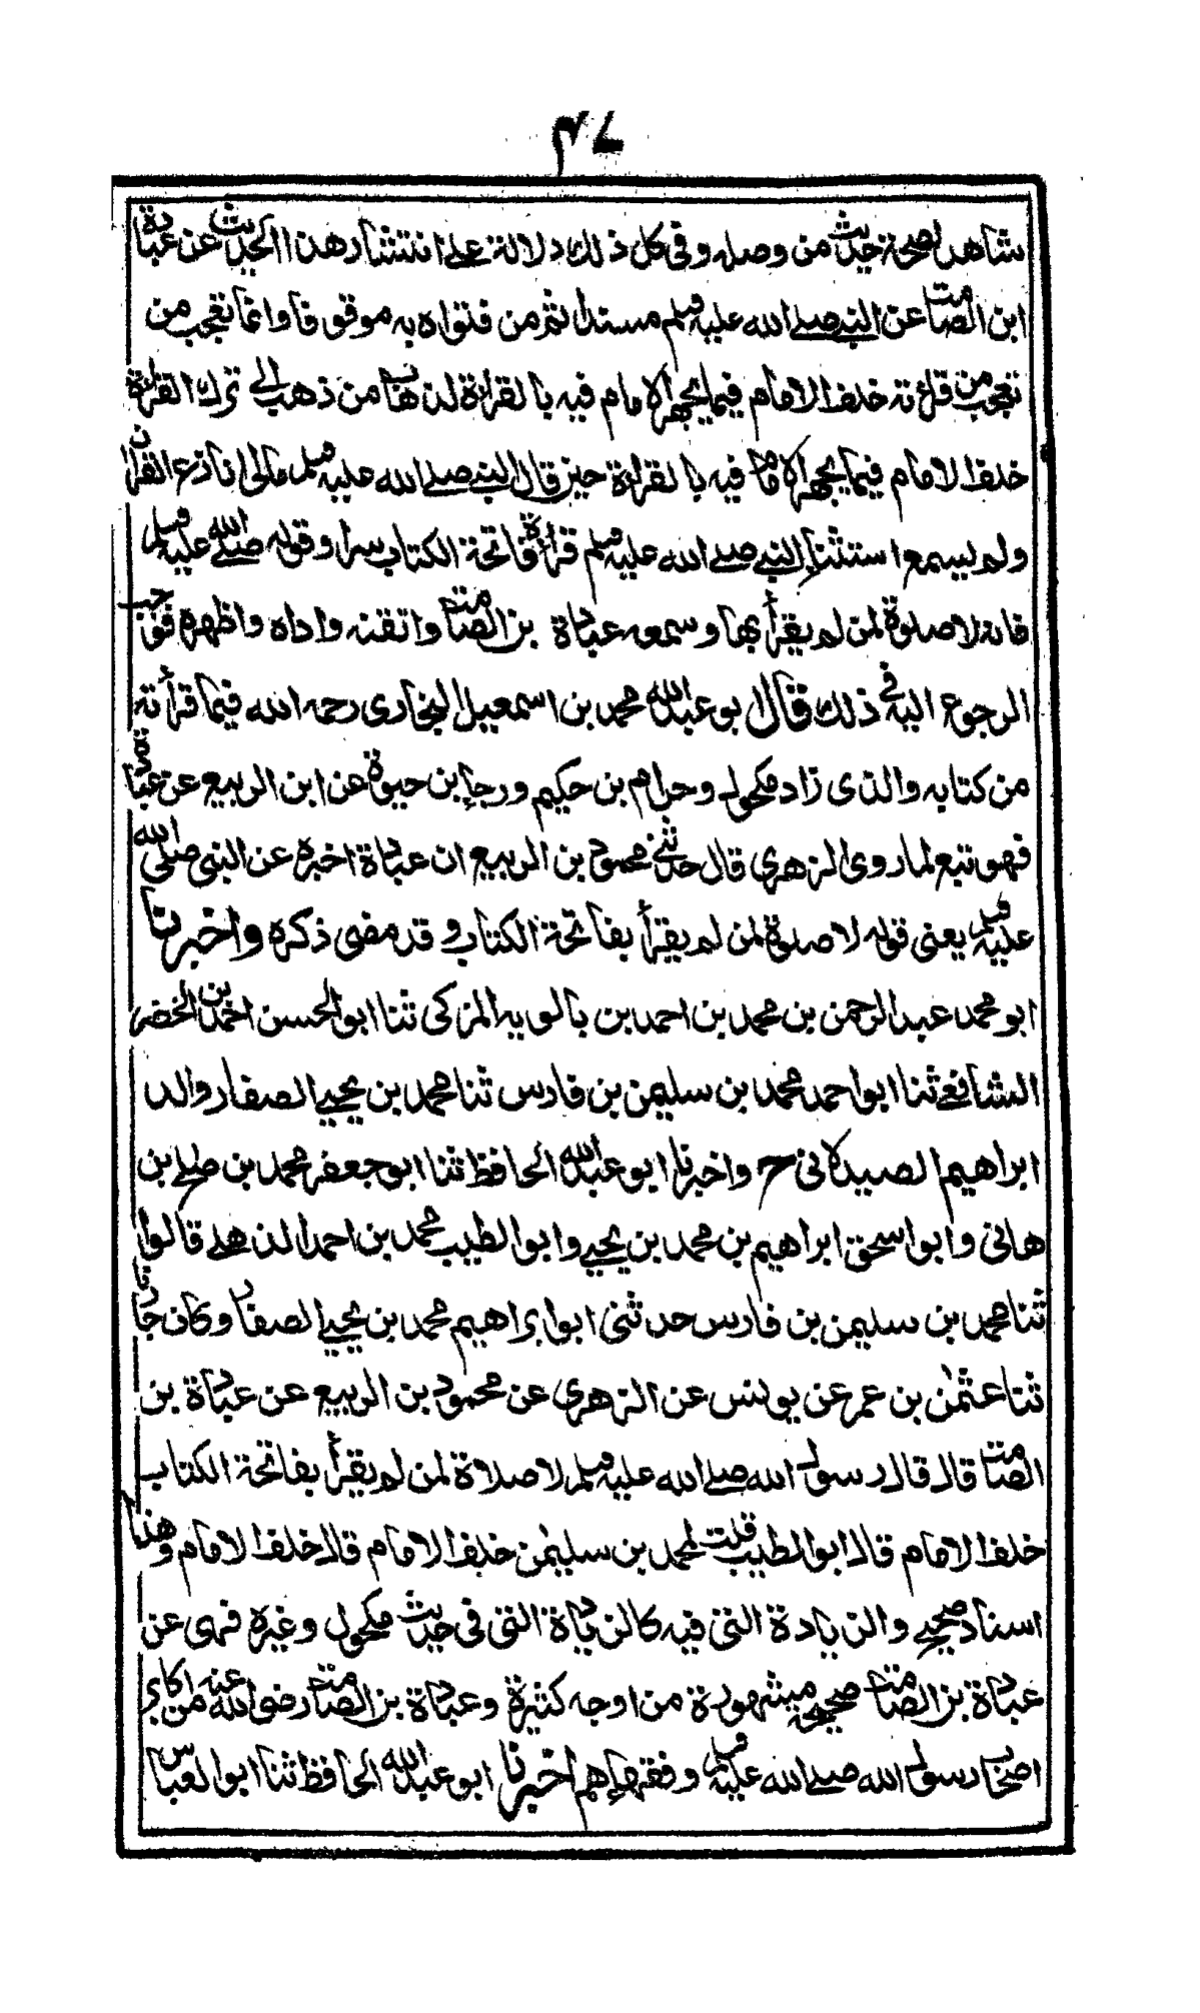 ٤٧
شاهد لصحة حديث من وصله وفي كل ذلك دلالة على انتشار هذا الحديث عن عبادة
ابن الصامت عن النبي صلے الله عليه وسلم مسندا ثم من فتواه به موقوفا وانما تعجب من
تعجب من قرأته خلف الامام فيما يجهر الامام فيه بالقرأة لذهاب من ذهب الى ترك القرأة
خلف الامام فيما يجهر الامام فيه بالقرأة حين قال النبي صلے الله عليه وسلم مالى انازع القرأن
ولم يسمع استثناء النبي صلے الله عليه وسلم قرأة فاتحة الكتاب سرا وقوله صلے الله عليه وسلم
فانه لا صلوة لمن لم يقرأ بها وسمعه عبادة بن الصامت واتقنه واداه واظهره فوجب
الرجوع اليه في ذلك قال ابو عبد الله محمد بن اسمعيل البخارى رحمه الله فيما قرأته
من كتابه والذى زاد مكحول وحرام بن حكيم ورجاء بن حيوة عن ابن الربيع عن عبادة
فهو تبع لما روى الزهري قال حدثني محمود بن الربيع ان عبادة اخبره عن النبي صلى الله
عليه وسلم يعنى قوله لا صلوة لمن لم يقرأ بفاتحة الكتاب وقد مضى ذكره واخبرنا
ابو محمد عبد الرحمن بن محمد بن احمد بن بالويه المزكى ثنا ابو الحسن احمد بن الخضر
الشافعے ثنا ابو احمد محمد بن سليمن بن فارس ثنا محمد بن يحيے الصفار والد
ابراهيم الصيدلانى ح واخبرنا ابو عبد الله الحافظ ثنا ابو جعفر محمد بن صلح بن
هانى وابو اسحق ابراهيم بن محمد بن يحيے وابو الطيب محمد بن احمد الذهلے قالوا
ثنا محمد بن سليمن بن فارس حدثنى ابو ابراهيم محمد بن يحيے الصفار وكان جارنا
ثنا عثمٰن بن عمر عن يونس عن الزهري عن محمود بن الربيع عن عبادة بن
الصامت قال قال رسول الله صلے الله عليه وسلم لا صلاة لمن لم يقرأ بفاتحة الكتاب
خلف الامام قال ابو الطيب قلت لمحمد بن سليمٰن خلف الامام قال خلف الامام وهذا
اسناد صحيح والزيادة التى فيه كالزيادة التى فى حديث مكحول وغيره فهى عن
عبادة بن الصامت صحيحة مشهورة من اوجه كثيرة وعبادة بن الصامت رضى الله عنه من اكابر
اصحاب رسول الله صلے الله عليه وسلم وفقهاءهم اخبرنا ابو عبد الله الحافظ ثنا ابو العباس